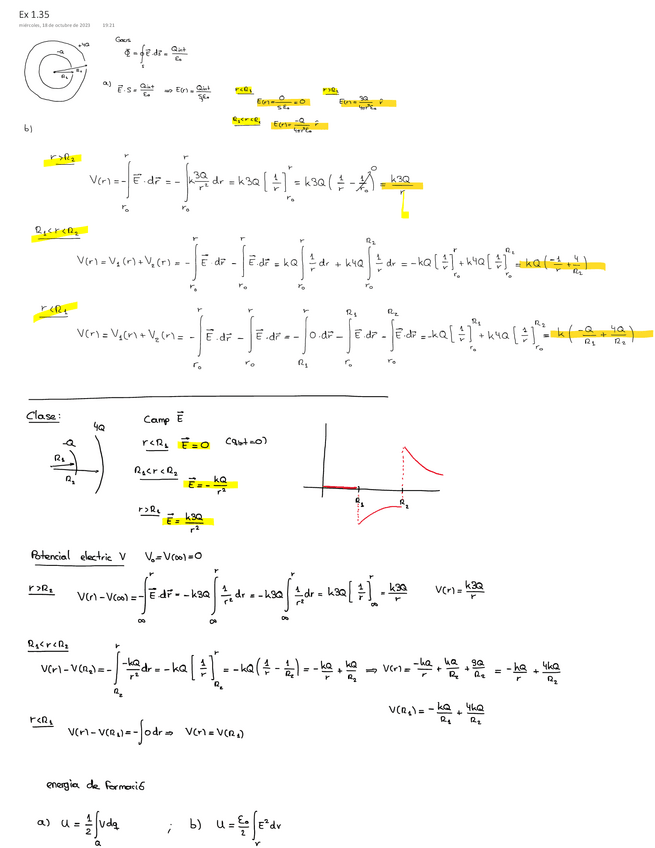 Ex 1.35
miércoles, 18 de octubre de 2023 19:21
-Q +4Q
R₁ R₂
Gauss
Φ = ∮ₛ E⃗·ds⃗ = Qint/ε₀
a) E⃗·S = Qint/ε₀ ⇒ E(r) = Qint/Sε₀
r<R₁
E(r) = 0/Sε₀ = 0
r>R₂
E(r) = 3Q/4πr²ε₀ r̂
R₁<r<R₂
E(r) = -Q/4πr²ε₀ r̂
b)
r>R₂
V(r) = -∫_{r₀}^{r} E⃗·dr⃗ = -∫_{r₀}^{r} k3Q/r² dr = k3Q [1/r]_{r₀}^{r} = k3Q (1/r - 1/r₀) 0 = k3Q/r
R₁<r<R₂
V(r) = V₁(r) + V₂(r) = -∫_{r₀}^{r} E⃗·dr⃗ - ∫_{r₀}^{r} E⃗·dr⃗ = kQ ∫_{r₀}^{r} 1/r dr + k4Q ∫_{r₀}^{R₂} 1/r dr = -kQ [1/r]_{r₀}^{r} + k4Q [1/r]_{r₀}^{R₂} = kQ (-1/r + 4/R₂)
r<R₁
V(r) = V₁(r) + V₂(r) = -∫_{r₀}^{r} E⃗·dr⃗ - ∫_{r₀}^{r} E⃗·dr⃗ = -∫_{R₁}^{r} 0·dr⃗ - ∫_{r₀}^{R₁} E⃗·dr⃗ - ∫_{r₀}^{R₂} E⃗·dr⃗ = -kQ [1/r]_{r₀}^{R₁} + k4Q [1/r]_{r₀}^{R₂} = k (-Q/R₁ + 4Q/R₂)
Clase:
-Q 4Q
R₁
R₂
Camp E⃗
r<R₁ E⃗ = 0 (Qint=0)
R₁<r<R₂
E⃗ = - kQ/r²
r>R₂
E⃗ = k3Q/r²
R₁ R₂
Potencial electric V V₀ = V(∞) = 0
r>R₂
V(r) - V(∞) = -∫_{∞}^{r} E⃗·dr⃗ = -k3Q ∫_{∞}^{r} 1/r² dr = -k3Q ∫_{∞}^{r} 1/r² dr = k3Q [1/r]_{∞}^{r} = k3Q/r V(r) = k3Q/r
R₁<r<R₂
V(r) - V(R₂) = -∫_{R₂}^{r} -kQ/r² dr = -kQ [1/r]_{R₂}^{r} = -kQ (1/r - 1/R₂) = -kQ/r + kQ/R₂ ⇒ V(r) = -kQ/r + kQ/R₂ + 3Q/R₂ = -kQ/r + 4kQ/R₂
V(R₁) = - kQ/R₁ + 4kQ/R₂
r<R₁
V(r) - V(R₁) = -∫0 dr ⇒ V(r) = V(R₁)
energia de formació
a) U = 1/2 ∫_Q V dq ; b) U = ε₀/2 ∫_V E² dv